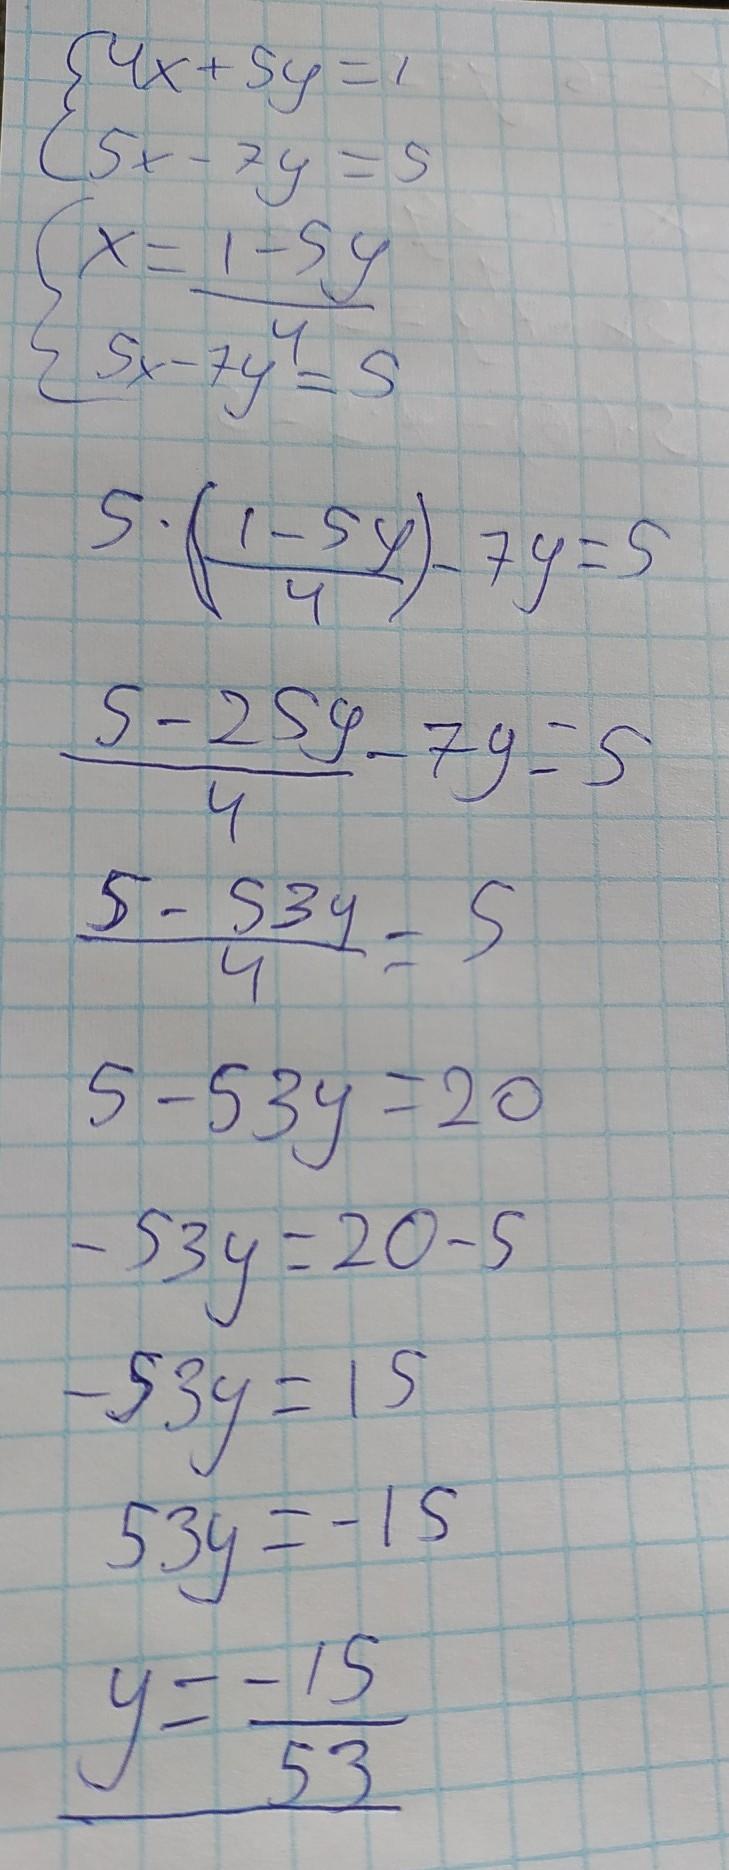 {4x+5y=1
5x-7y=5
{x=(1-5y)/4
5x-7y=5
5·((1-5y)/4)-7y=5
(5-25y)/4-7y=5
(5-53y)/4=5
5-53y=20
-53y=20-5
-53y=15
53y=-15
y=-15/53